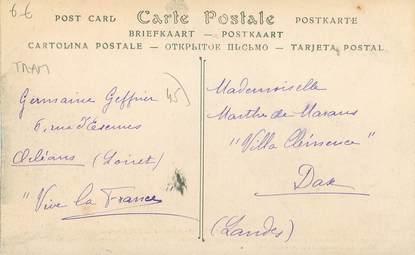 6-6
POST CARD Carte Postale POSTKARTE
BRIEFKAART — POSTKAART
CARTOLINA POSTALE — ОТКРЫТОЕ ПИСЬМО — TARJETA POSTAL
TRAM
Germaine Geffrier
45)
6, rue d'Escures
Orléans (Loiret)
"Vive la France"
Mademoiselle
Marthe de Marans
"Villa Clémence"
Dax
(Landes)